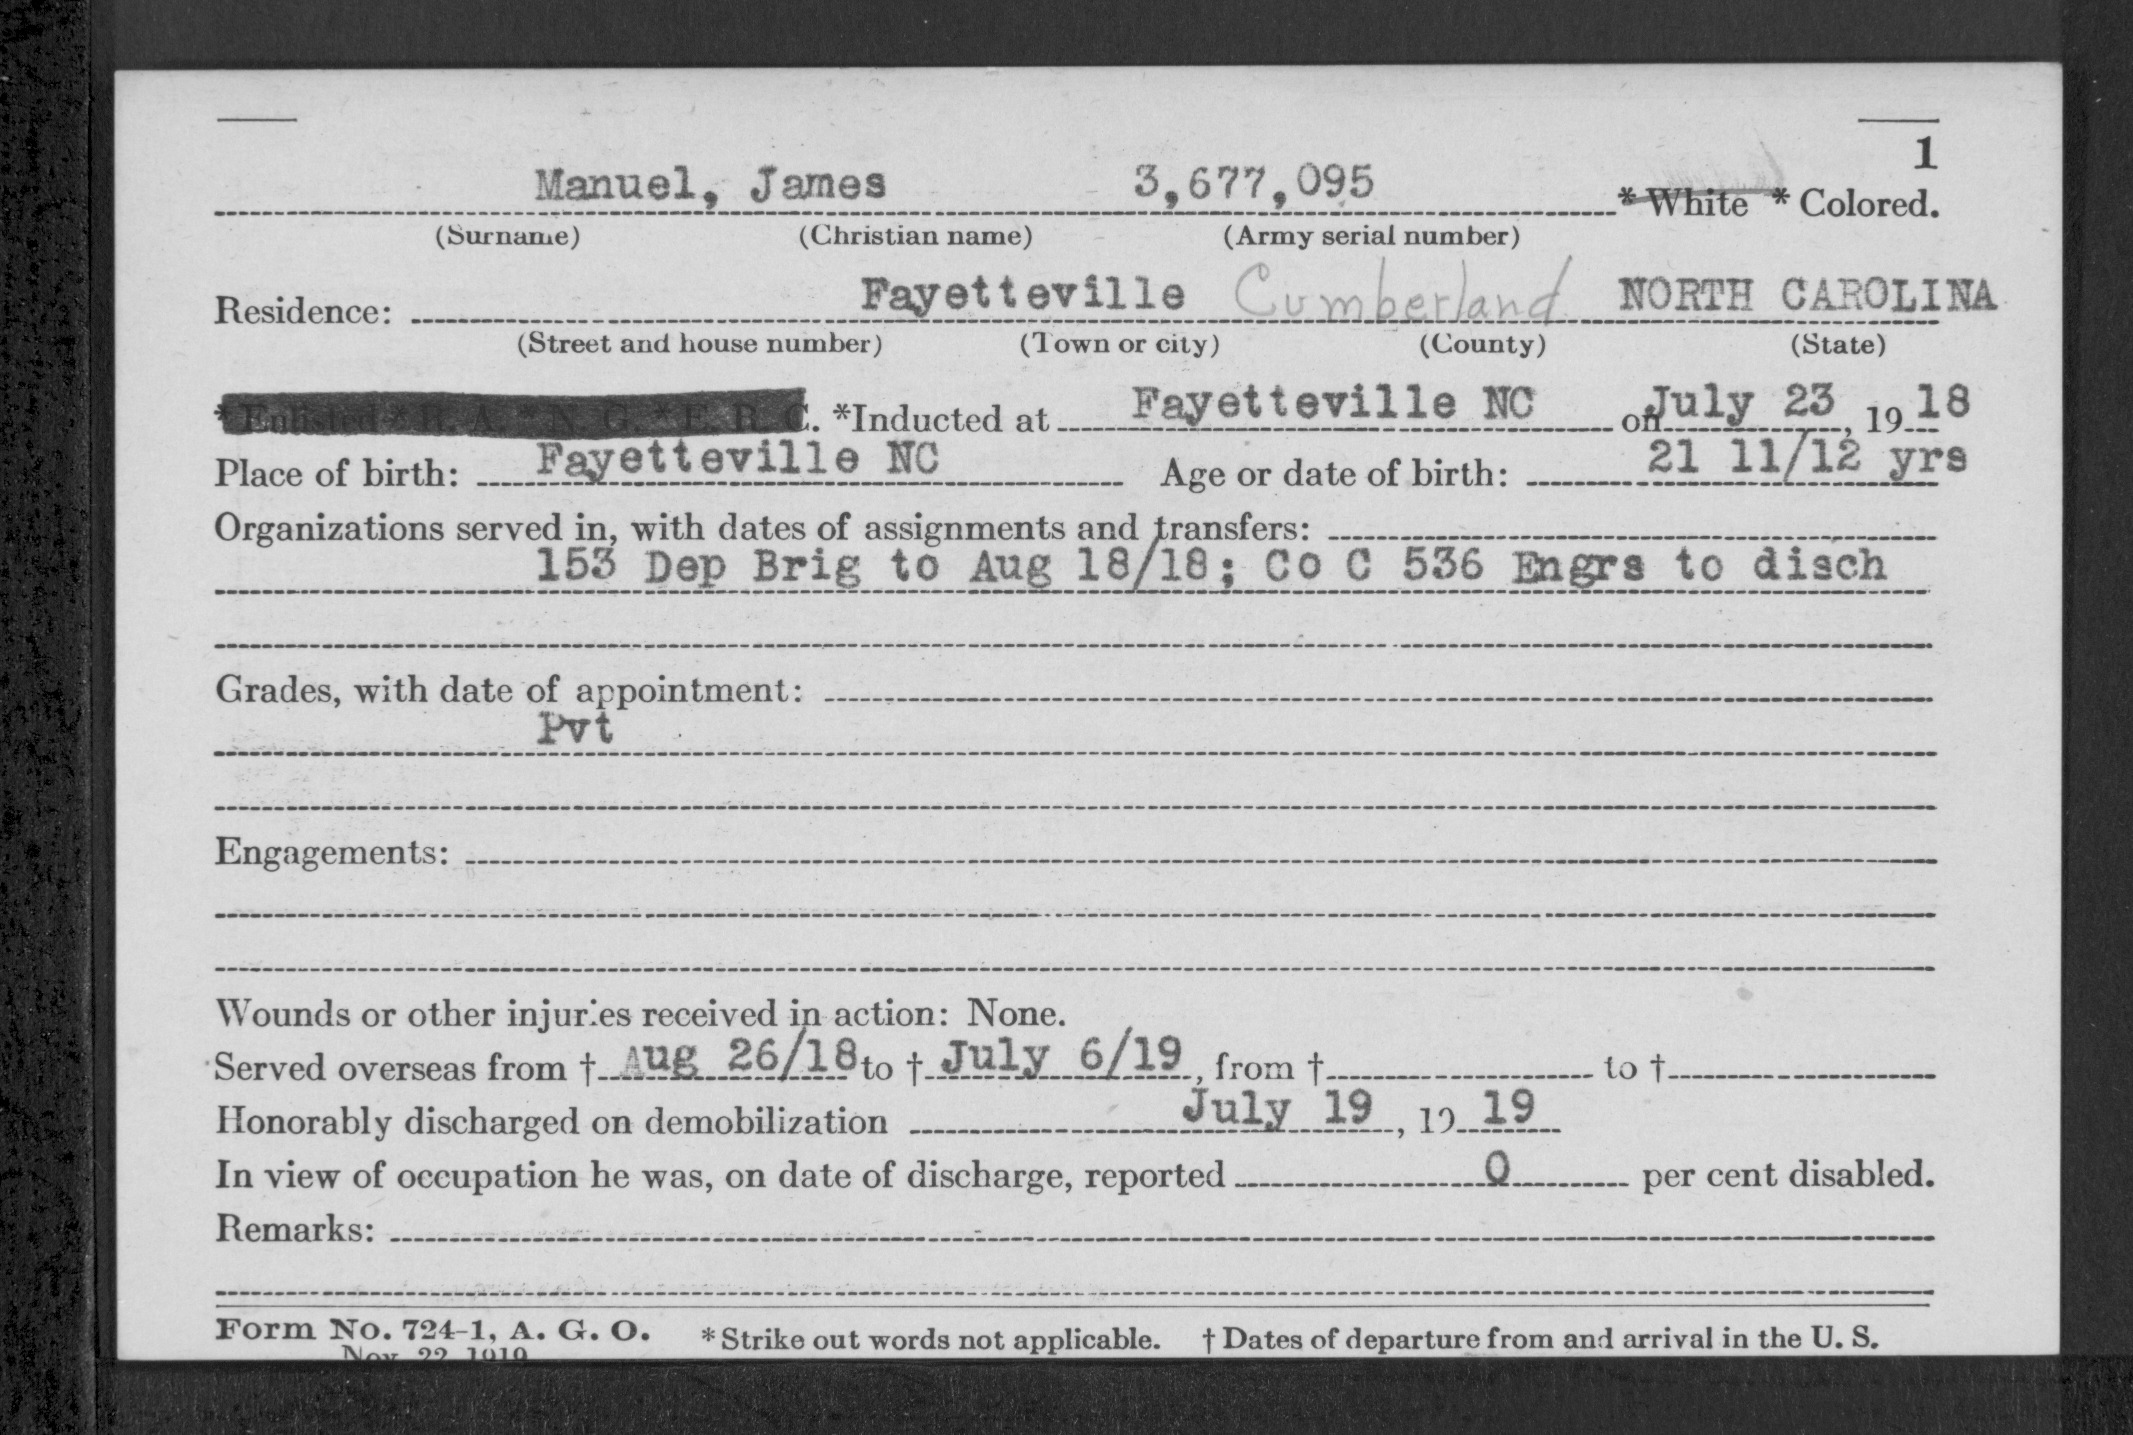 1
Manuel, James 3,677,095 * White * Colored.
(Surname) (Christian name) (Army serial number)
Residence: Fayetteville Cumberland NORTH CAROLINA
(Street and house number) (Town or city) (County) (State)
* Enlisted * R. A. * N. G. * E. R. C. *Inducted at Fayetteville NC on July 23, 1918
Place of birth: Fayetteville NC Age or date of birth: 21 11/12 yrs
Organizations served in, with dates of assignments and transfers:
153 Dep Brig to Aug 18/18; Co C 536 Engrs to disch
Grades, with date of appointment:
Pvt
Engagements:
Wounds or other injuries received in action: None.
Served overseas from † Aug 26/18 to † July 6/19, from † to †
Honorably discharged on demobilization July 19, 1919
In view of occupation he was, on date of discharge, reported 0 per cent disabled.
Remarks:
Form No. 724-1, A. G. O. * Strike out words not applicable. † Dates of departure from and arrival in the U. S.
Nov 22 1919